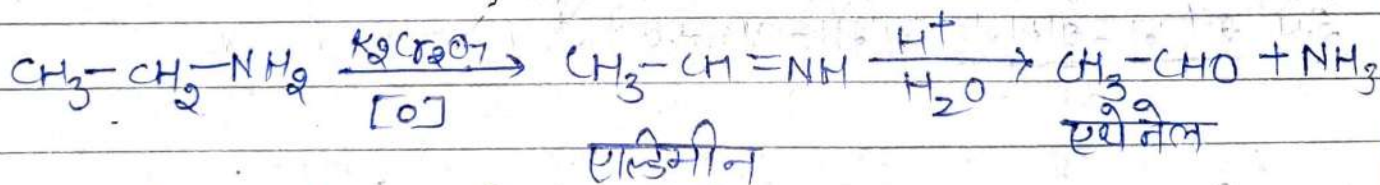 CH₃-CH₂-NH₂ K₂Cr₂O₇ [O] → CH₃-CH=NH H⁺ H₂O → CH₃-CHO + NH₃
एल्डिमीन एथेनेल